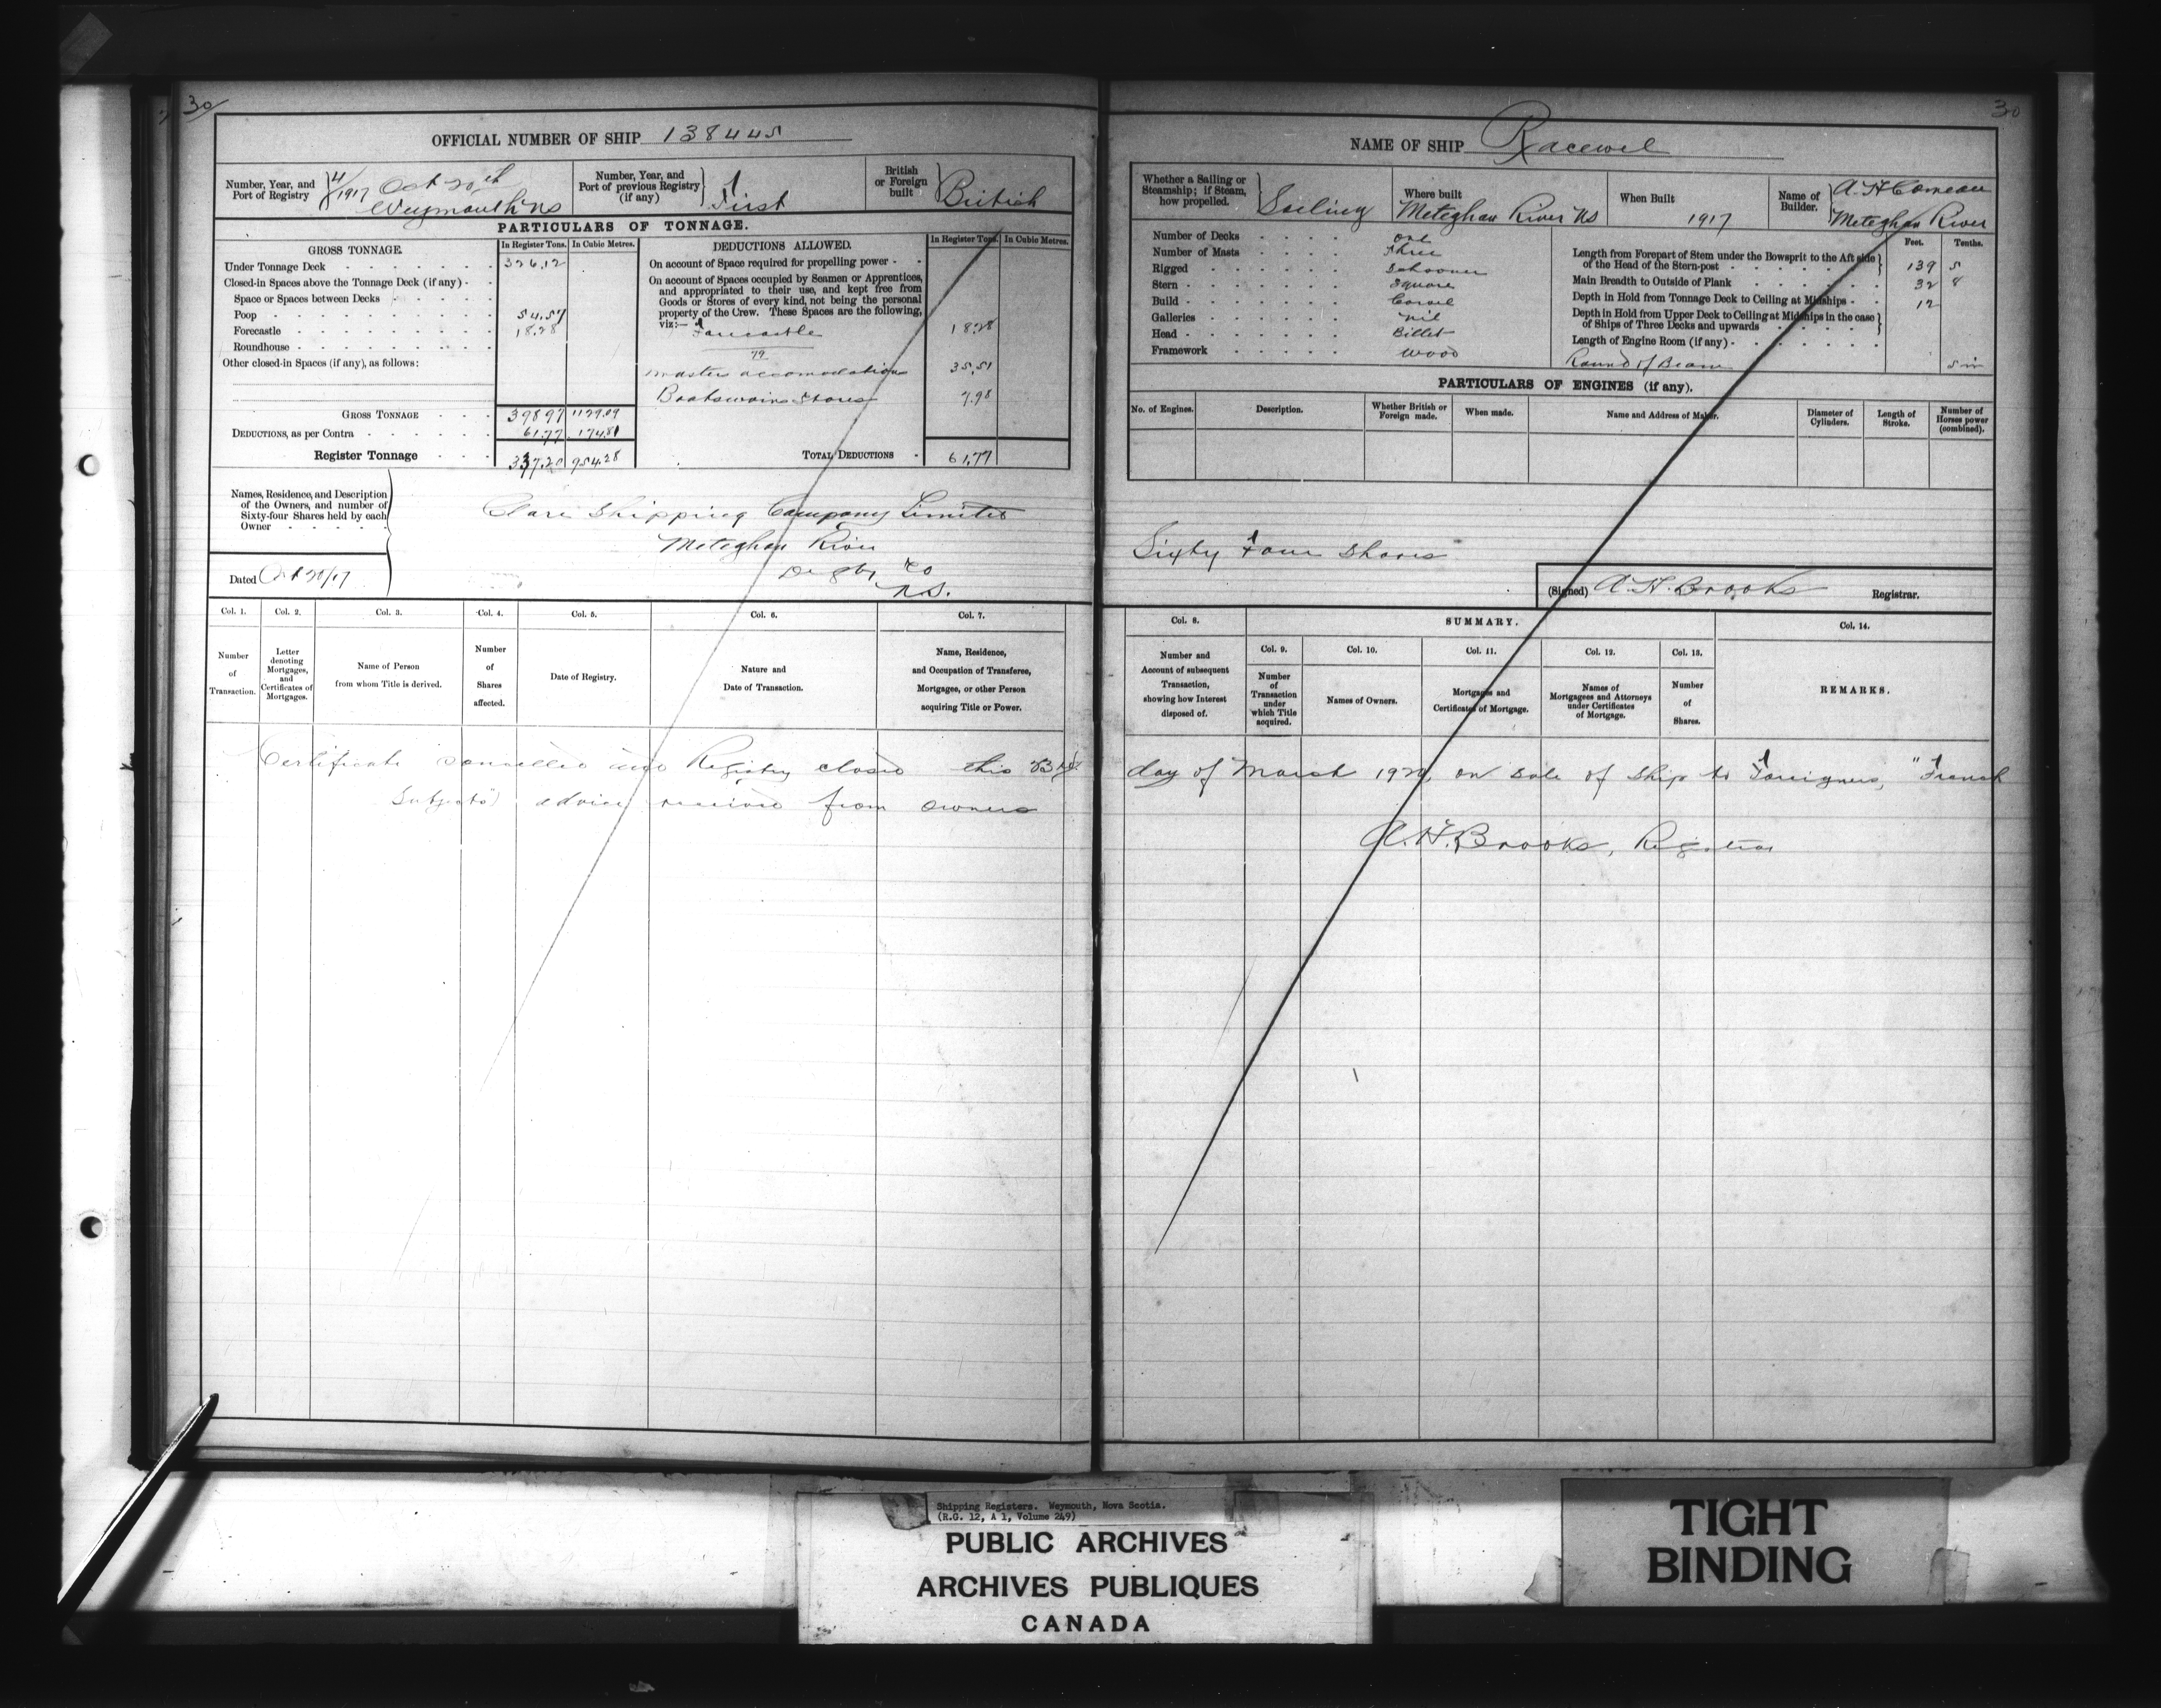 30
OFFICIAL NUMBER OF SHIP 138445
Number, Year, and Port of Registry 4/1917 Oct 20th Weymouth NS
Number, Year, and Port of previous Registry (if any) First
British or Foreign built British
PARTICULARS OF TONNAGE.
GROSS TONNAGE. In Register Tons. In Cubic Metres.
Under Tonnage Deck 326.12
Closed-in Spaces above the Tonnage Deck (if any)
Space or Spaces between Decks
Poop 54.57
Forecastle 18.28
Roundhouse
Other closed-in Spaces (if any), as follows:
GROSS TONNAGE 398.97 1129.09
DEDUCTIONS, as per Contra 61.77 174.81
Register Tonnage 337.20 954.28
DEDUCTIONS ALLOWED. In Register Tons. In Cubic Metres.
On account of Space required for propelling power
On account of Spaces occupied by Seamen or Apprentices, and appropriated to their use, and kept free from Goods or Stores of every kind, not being the personal property of the Crew. These Spaces are the following, viz:—
Forecastle 18.28
Masters accomodation 35.51
Boatswains Stores 7.98
TOTAL DEDUCTIONS 61.77
Names, Residence, and Description of the Owners, and number of Sixty-four Shares held by each Owner
Clare Shipping Company Limited
Meteghan River
Digby Co
N.S.
Dated Oct 20/17
Col. 1. Col. 2. Col. 3. Col. 4. Col. 5. Col. 6. Col. 7.
Number of Transaction.
Letter denoting Mortgages, and Certificates of Mortgages.
Name of Person from whom Title is derived.
Number of Shares affected.
Date of Registry.
Nature and Date of Transaction.
Name, Residence, and Occupation of Transferee, Mortgages, or other Person acquiring Title or Power.
Certificate cancelled and Registry closed this 23rd
Subjects") advice received from owners
30
NAME OF SHIP Racewel
Whether a Sailing or Steamship; if Steam, how propelled. Sailing
Where built Meteghan River NS
When Built 1917
Name of Builder. A H Comeau Meteghan River
Number of Decks one
Number of Masts Three
Rigged Schooner
Stern Square
Build Carvel
Galleries nil
Head Billet
Framework Wood
Feet. Tenths.
Length from Forepart of Stem under the Bowsprit to the Aft side of the Head of the Stern-post 139 5
Main Breadth to Outside of Plank 32 8
Depth in Hold from Tonnage Deck to Ceiling at Midships 12
Depth in Hold from Upper Deck to Ceiling at Midships in the case of Ships of Three Decks and upwards
Length of Engine Room (if any)
Round of Beam 5 in
PARTICULARS OF ENGINES (if any).
No. of Engines. Description. Whether British or Foreign made. When made. Name and Address of Maker. Diameter of Cylinders. Length of Stroke. Number of Horses power (combined).
Sixty Four Shares
(Signed) A. H. Brooks Registrar.
Col. 8. SUMMARY. Col. 14.
Col. 9. Col. 10. Col. 11. Col. 12. Col. 13.
Number and Account of subsequent Transaction, showing how Interest disposed of.
Number of Transaction under which Title acquired.
Names of Owners.
Mortgages and Certificates of Mortgage.
Names of Mortgagees and Attorneys under Certificates of Mortgage.
Number of Shares.
REMARKS.
day of March on sale of ship to Foreigners, "French
A. H. Brooks, Registrar
Shipping Registers. Weymouth, Nova Scotia.
(R.G. 12, A 1, Volume 249)
PUBLIC ARCHIVES
ARCHIVES PUBLIQUES
CANADA
TIGHT
BINDING